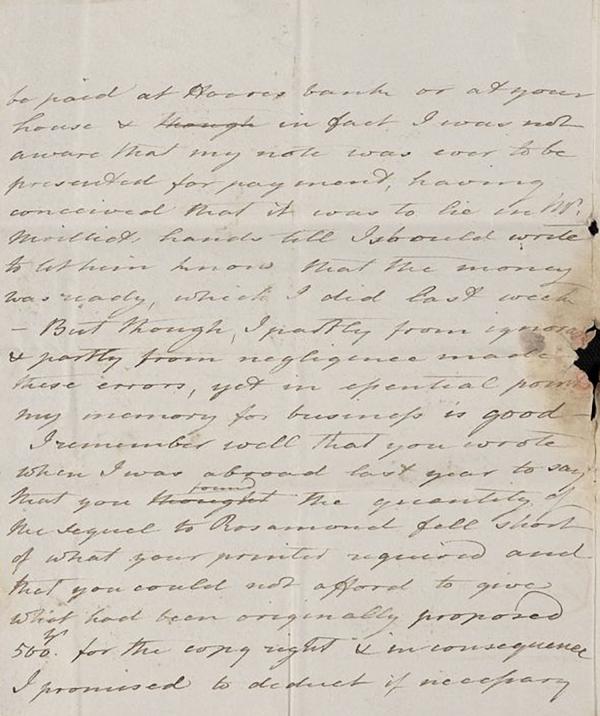 be paid at Hoares bank or at your
house & though in fact I was not
aware that my note was ever to be
presented for payment, having
conceived that it was to lie in Mr.
hands till I should write
to let him know that the money
was ready, which I did last week
- But though, I partly from ignoran
& partly from negligence made
these errors, yet in essential poin
my memory for business is good -
I remember well that you wrote
when I was abroad last year to say
that you thought found the quantity of
the sequel to Rosamond fell short
of what your printer required and
that you could not afford to give
what had been originally proposed
500 for the copy right & in consequence
I promised to deduct if necessary